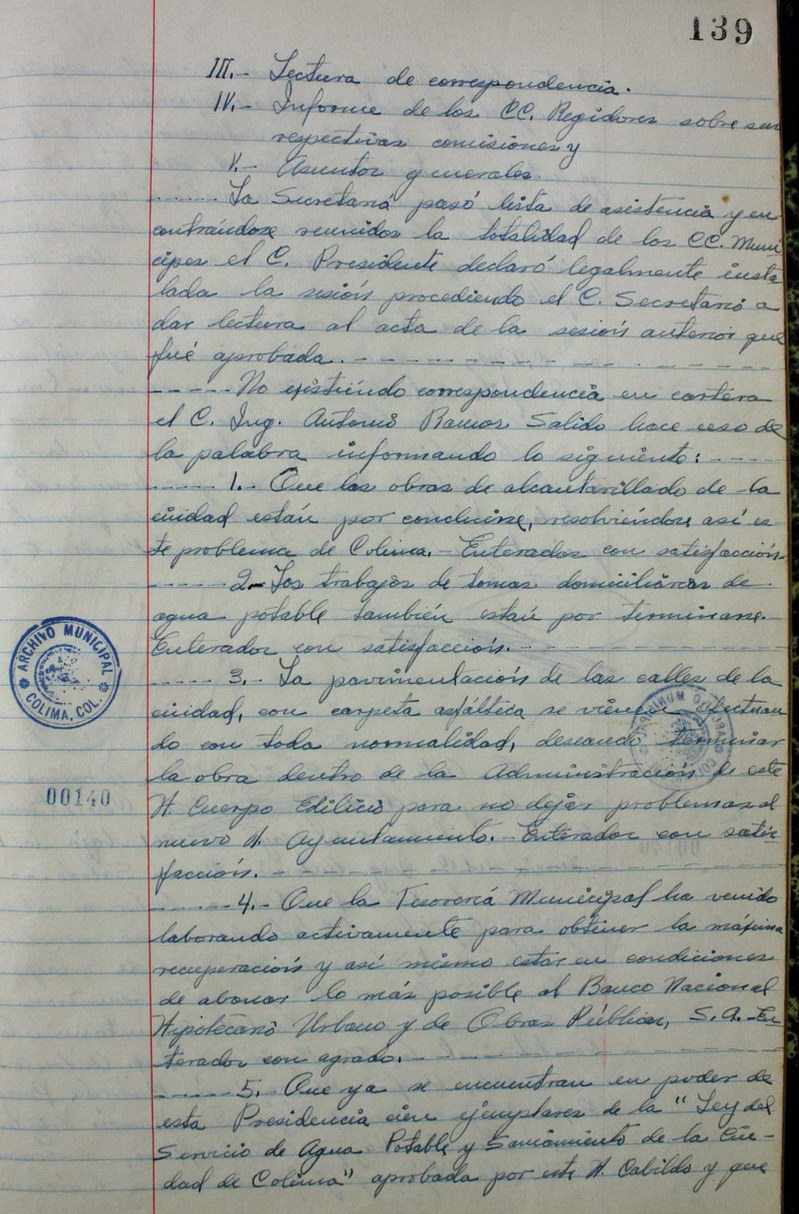 139
III.- Lectura de correspondencia.
IV.- Informe de los CC. Regidores sobre sus
respectivas comisiones y
V.- Asuntos generales.
----- La Secretaría pasó lista de asistencia y en
contrándose reunidos la totalidad de los CC. Muní
cipes el C. Presidente declaró legalmente insta
lada la sesión procediendo el C. Secretario a
dar lectura al acta de la sesión anterior que
fué aprobada. - - - - - - - - - - - - - - -
----- No existiendo correspondencia en cartera
el C. Ing. Antonio Ramos Salido hace uso de
la palabra informando lo siguiente: - - - -
----- 1.- Que las obras de alcantarillado de la
ciudad están por concluirse, resolviéndose así es
te problema de Colima.- Enterados con satisfacción.
----- 2.- Los trabajos de tomas domiciliarias de
agua potable también están por terminarse.
Enterados con satisfacción. - - - - - - - - -
----- 3.- La pavimentación de las calles de la
ciudad, con carpeta asfáltica se vienen efectuan
do con toda normalidad, deseando terminar
la obra dentro de la Administración de este
H. Cuerpo Edilicio para no dejar problemas al
nuevo H. Ayuntamiento.- Enterados con satis-
facción. - - - - - - - - - - - - - - -
----- 4.- Que la Tesorería Municipal ha venido
laborando activamente para obtener la máxima
recuperación y así mismo estar en condiciones
de abonar lo más posible al Banco Nacional
Hipotecario Urbano y de Obras Públicas, S.A.-En
terados con agrado. - - - - - - - - - - - -
----- 5.- Que ya se encuentran en poder de
esta Presidencia cien ejemplares de la "Ley del
Servicio de Agua Potable y Saneamiento de la Ciu-
dad de Colima" aprobada por este H. Cabildo y que
ARCHIVO MUNICIPAL
COLIMA, COL.
00140